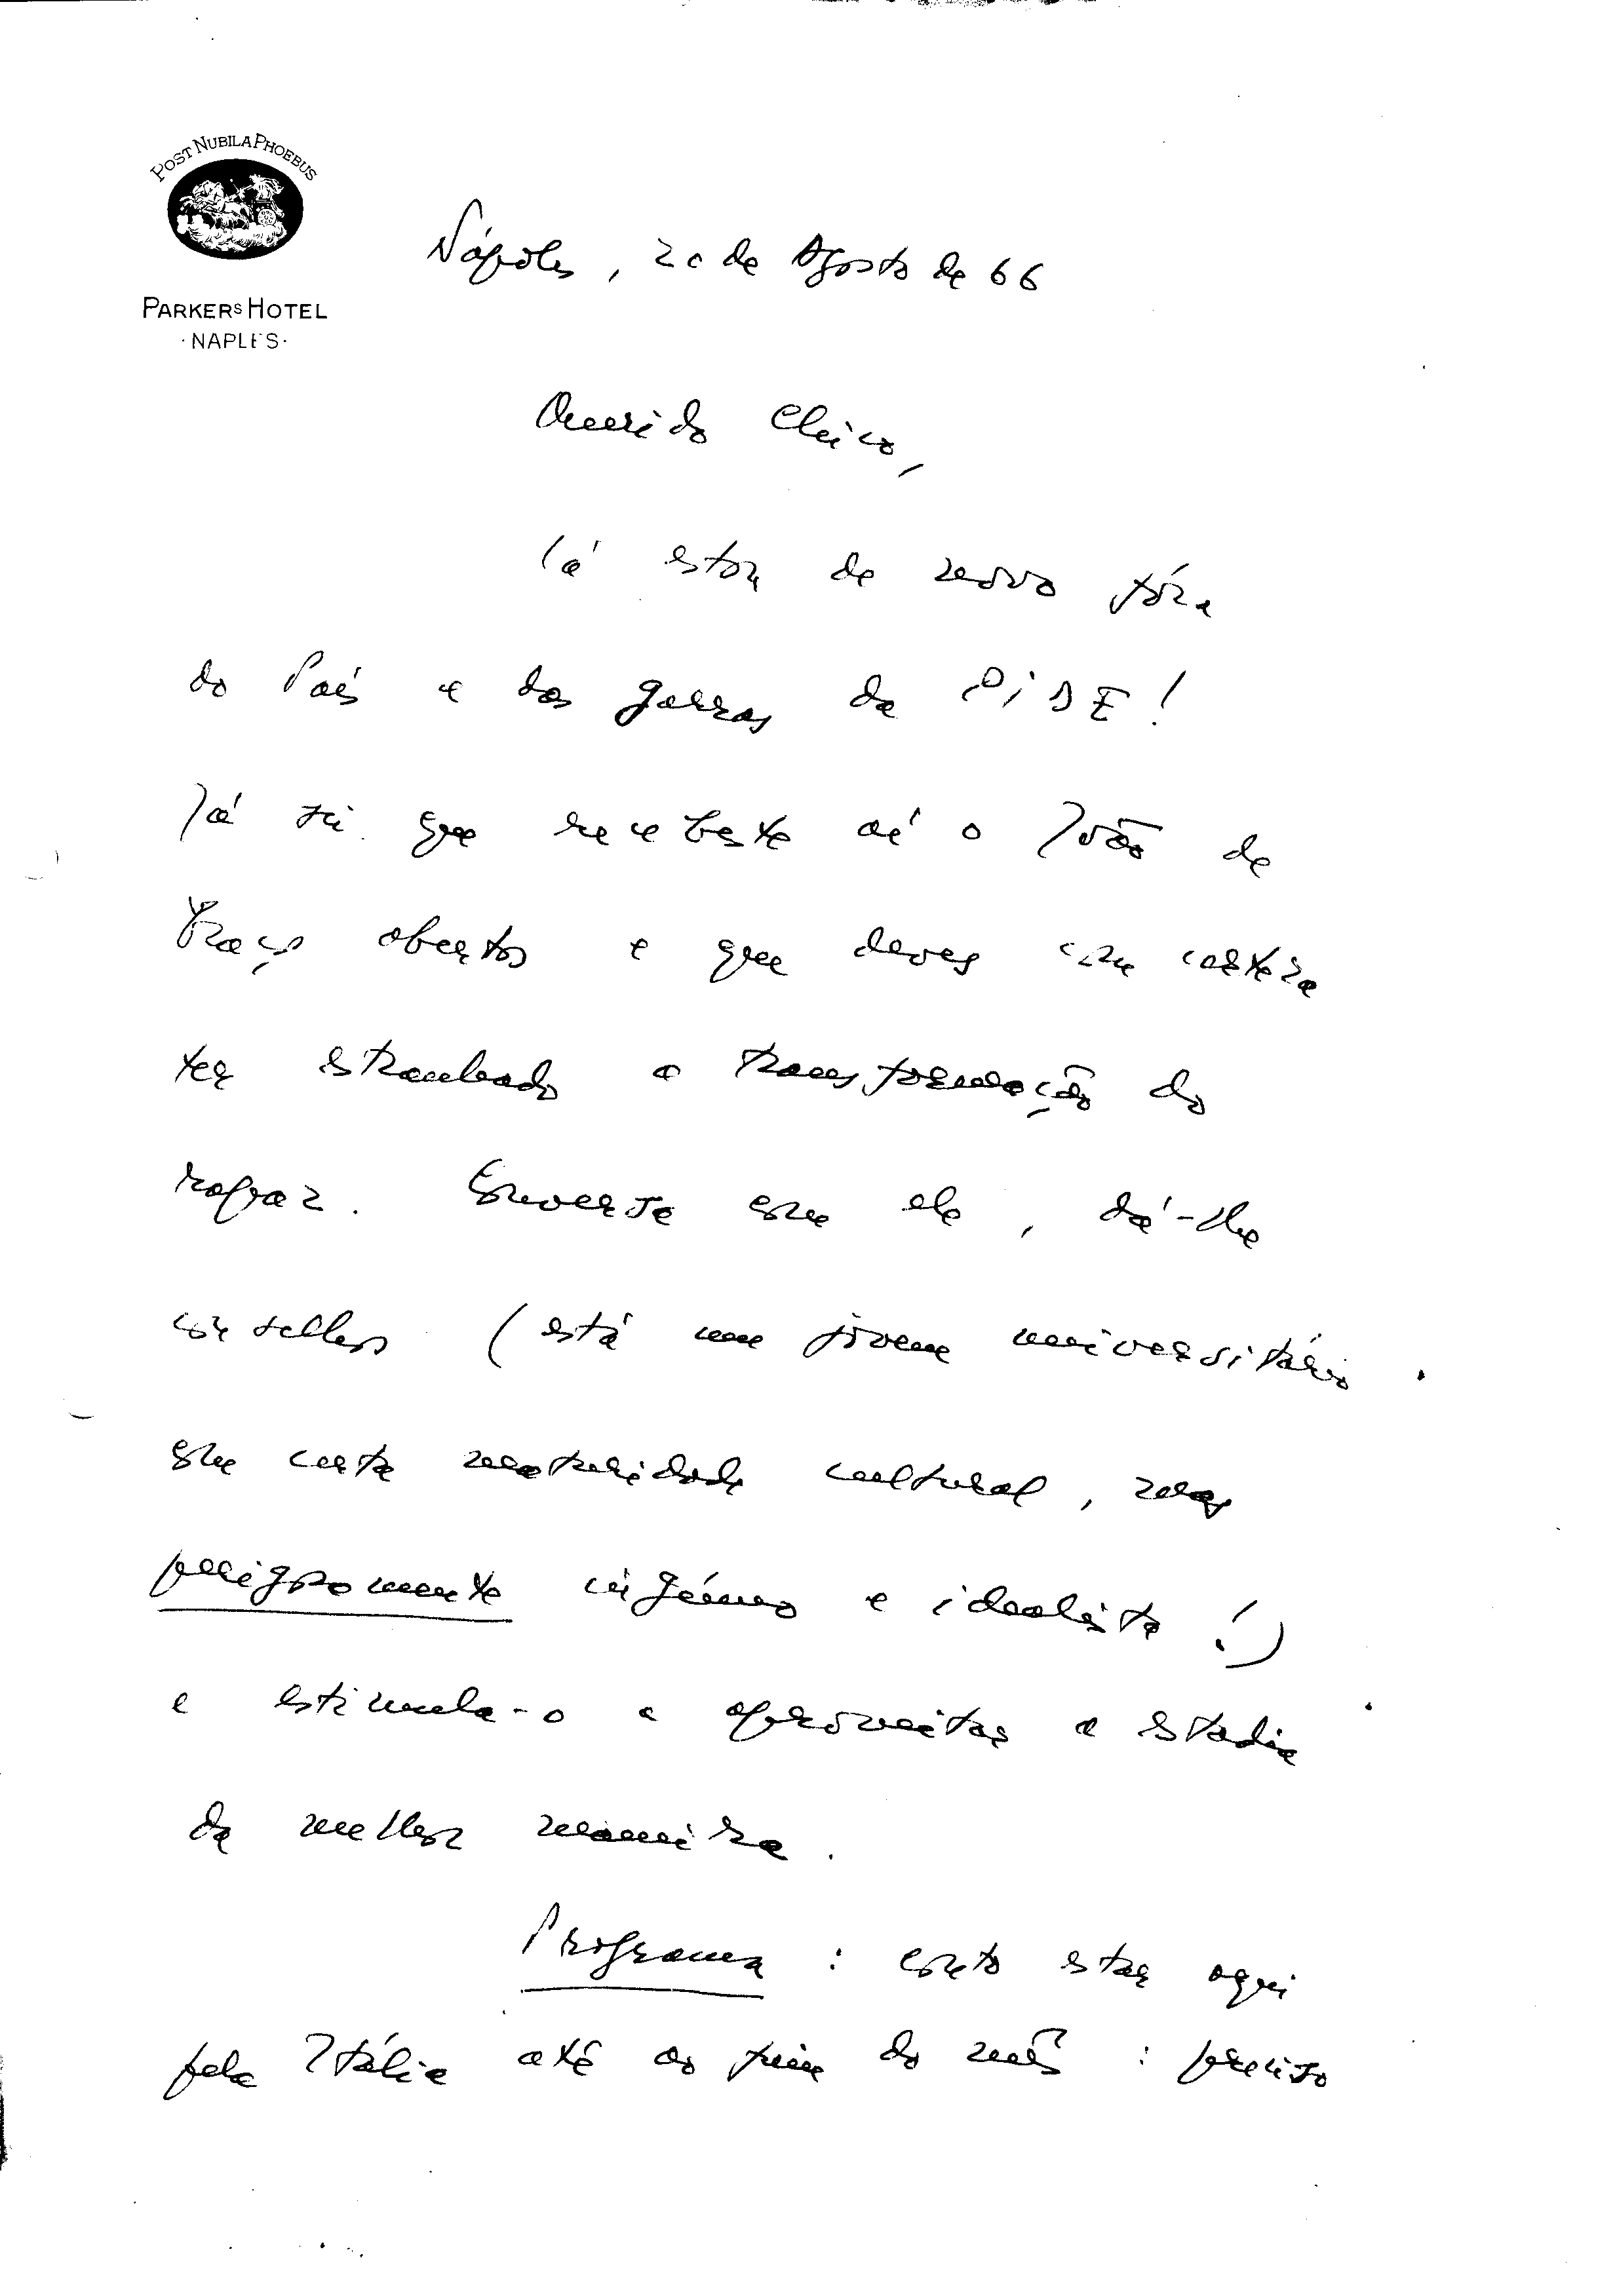 POST NUBILA PHOEBUS
PARKERS HOTEL
·NAPLES·
Nápoles, 20 de Agosto de 66
Querido Chico,
Cá estou de novo fóra
do País e das garras da PIDE!
Já sei que recebeste aí o João de
braços abertos e que deves com certeza
ter estranhado a transformação do
rapaz. Conversa com ele, dá-lhe
conselhos (está um jovem universitário
com certa maturidade cultural, mas
perigosamente ingénuo e idealista!)
e estimula-o a aproveitar a estadia
da melhor maneira.
Programa : conto estar aqui
pela Itália até ao fim do mês : preciso